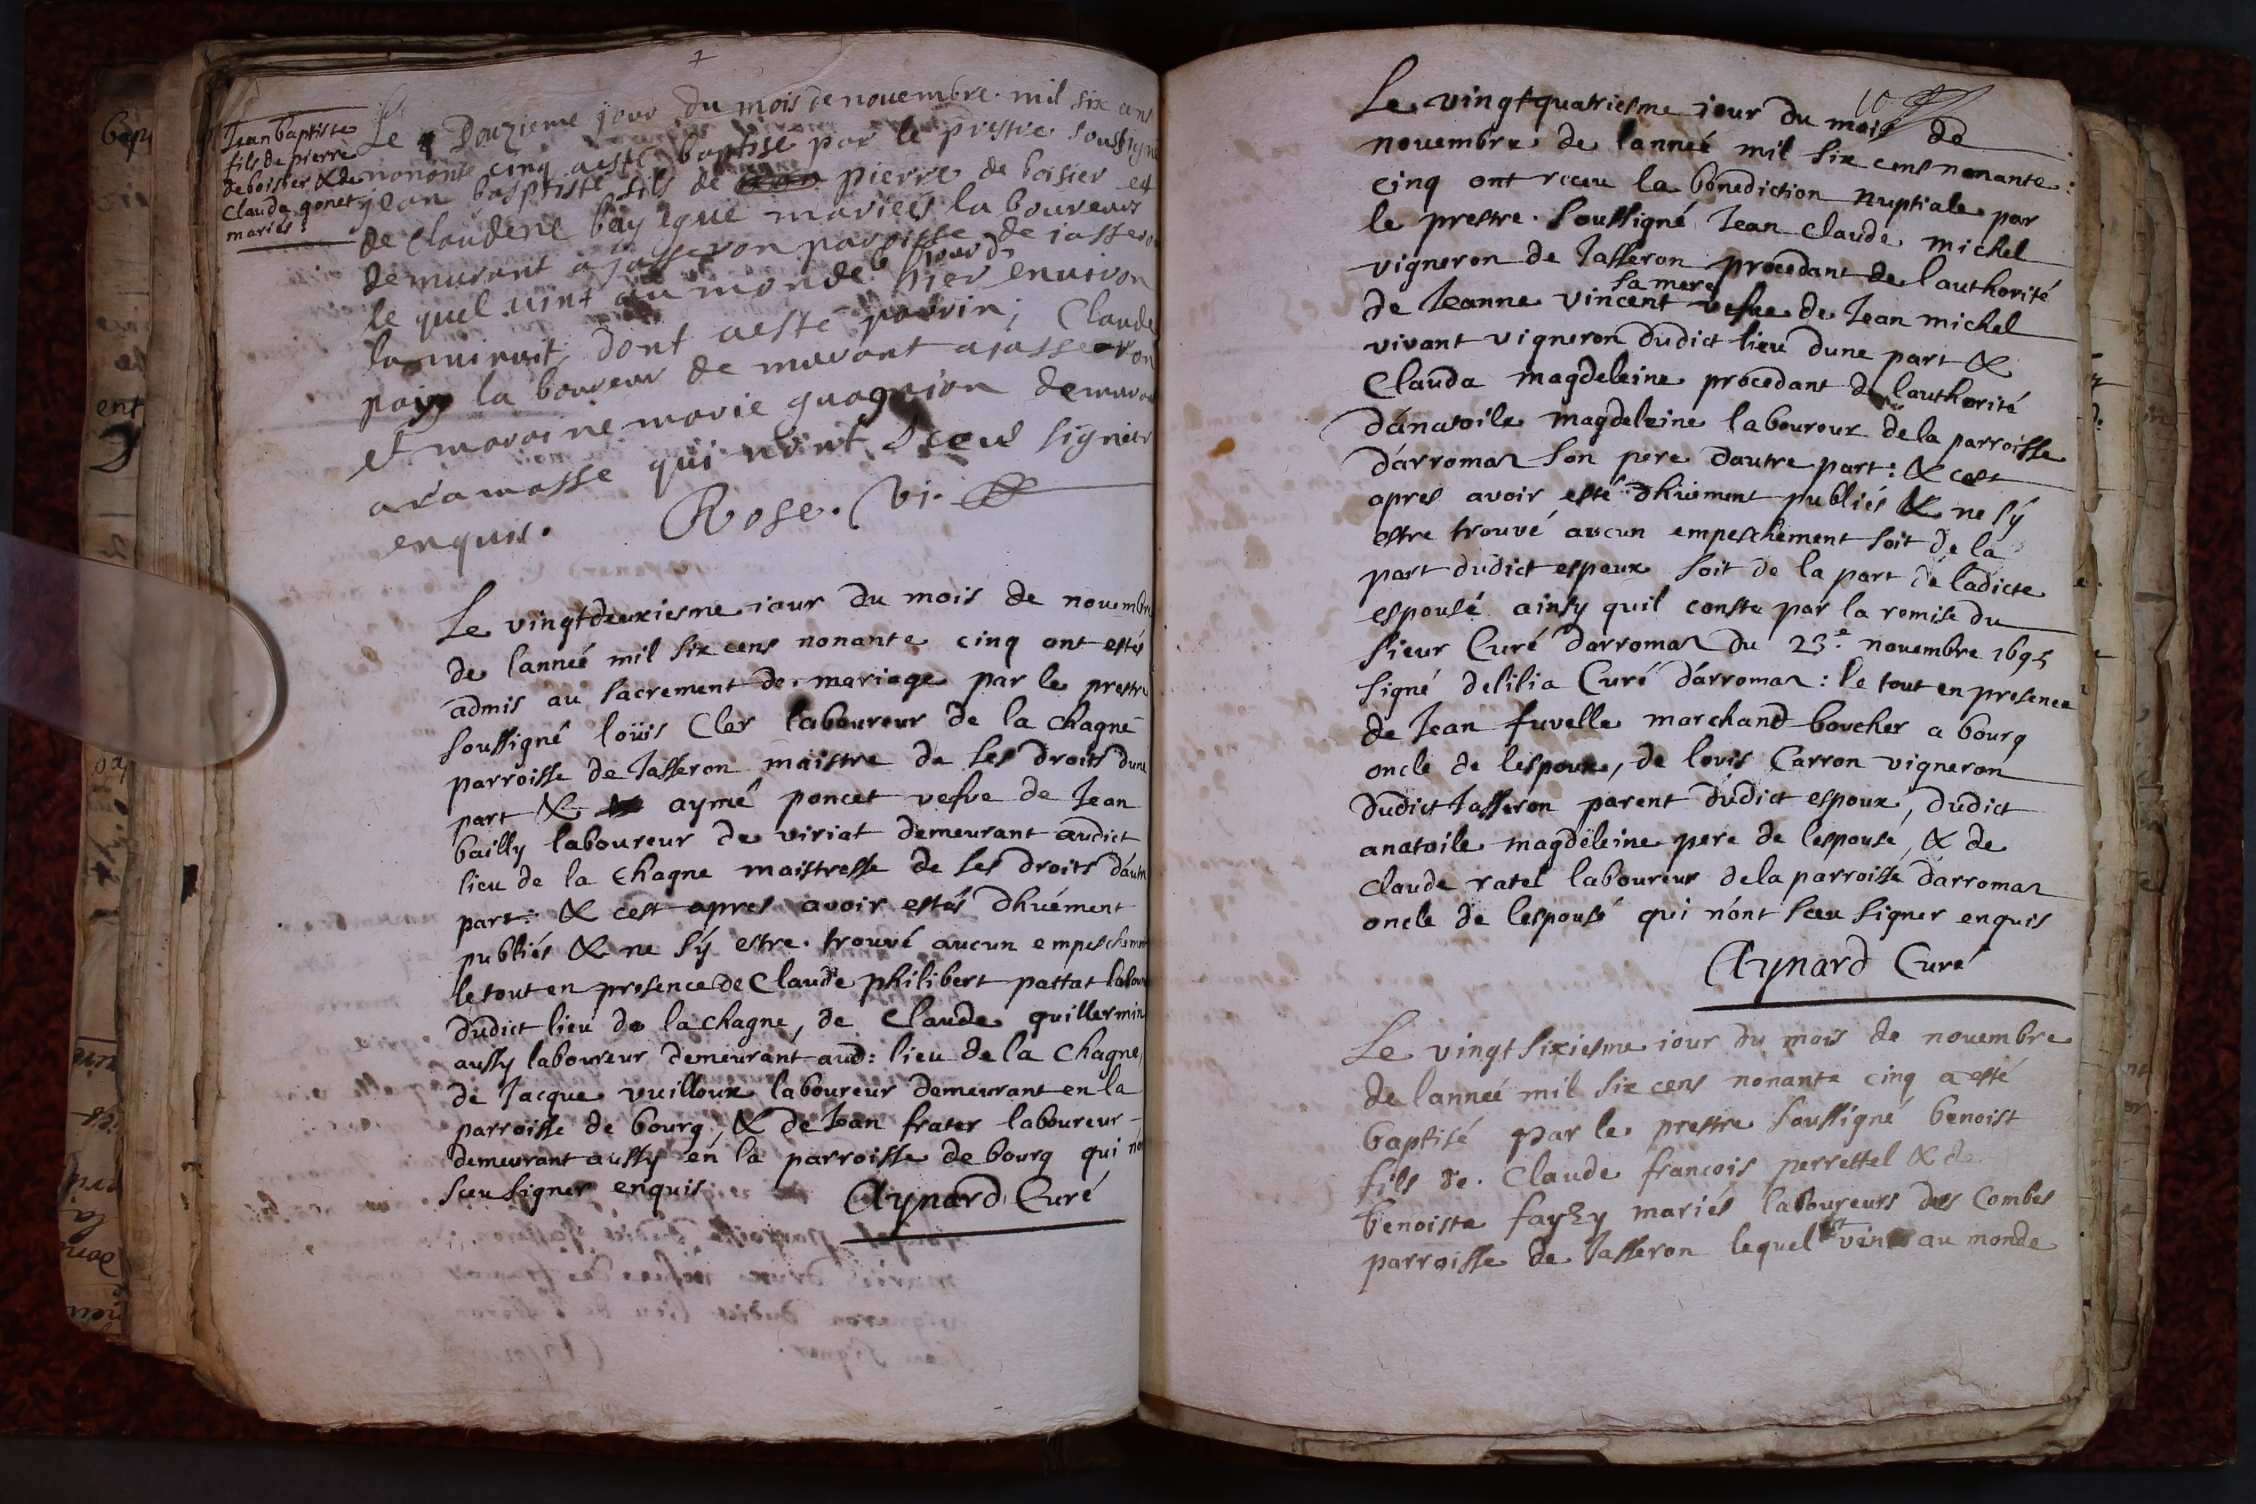 Jean baptiste
fils de pierre
de boisier & de
Clauda gonet
mariés
Le Douzieme jour du mois de nouembre mil six cens
nonante cinq aesté baptise par le prestre soussigné
jean baptiste fils de pierre de boisier et
de Claudene mariés laboureurs
demurant a Jasseron paroisse de jasseron
le quel uint au monde le jour d'hier enuiron
la minuit, dont aesté parrin, Claude
laboureur de murant a jasseron
et maraine marie guagnion demurant
a ramasse qui n'ont sceu signer
enquis. Rose. vi.
Le vingtdeuxiesme iour du mois de nouembre
de lanneé mil six cens nonante cinq ont estés
admis au sacrement de mariage par le prestre
soussigné loüis Cler laboureur de la chagne
parroisse de Jasseron maistre de ses droits dune
part & aymé poncet vefve de Jean
bailly laboureur de viriat demeurant audict
lieu de la chagne maistresse de ses droits dáutre
part: & cest apres avoir estés dhuëment
publiés & ne sÿ estre trouvé aucun empeschement
le tout en presence de Claude philibert pattat labour
dudict lieu de la chagne, de Claude guillermin
aussy laboureur demeurant aud: lieu de la Chagne,
de Jacque vuilloux laboureur demeurant en la
parroisse de bourg, & de Jean frater laboureur
demeurant aussÿ en la parroisse de bourg qui n'ó
sceu signer enquis Aynard Curé
Le vingtquatriesme iour du mois de
novembre de lanneé mil six cens nonante:
cinq ont receu la bénediction nuptiale par
le prestre soussigné Jean claude michel
vigneron de Jasseron procedant de lauthorité
de Jeanne Vincent sa mere vefve de Jean michel
vivant vigneron dudict lieu dune part &
Clauda magdeleine procedant de lauthorité
dánatoile magdeleine laboureur de la parroisse
dárromas son pere dautre part: & cest
apres avoir esté dhüement publiés & ne sÿ
estre trouvé aucun empeschement soit de la
part dudict espoux soit de la part de ladicte
espousé ainsy quil conste par la remise du
sieur Curé darromas du 23.e novembre 1695
signé delilia Curé dárromas: le tout en presence
de Jean fuvelle marchand boucher a bourg
oncle de lespoux, de lovis Carron vigneron
dudict Jasseron parent dudict espoux, dudict
anatoile magdeleine pere de lespousé, & de
claude ratel laboureur de la parroisse dárromas
oncle de lespousé qui nónt sceu signer enquis
Aynard Curé
Le vingt sixiesme iour du mois de nouembre
de lanneé mil six cens nonante cinq a esté
baptisé par le prestre soussigné benoist
fils de Claude francois perrettel & de
benoiste fayzy mariés laboureurs des Combes
parroisse de Jasseron lequel vint au monde